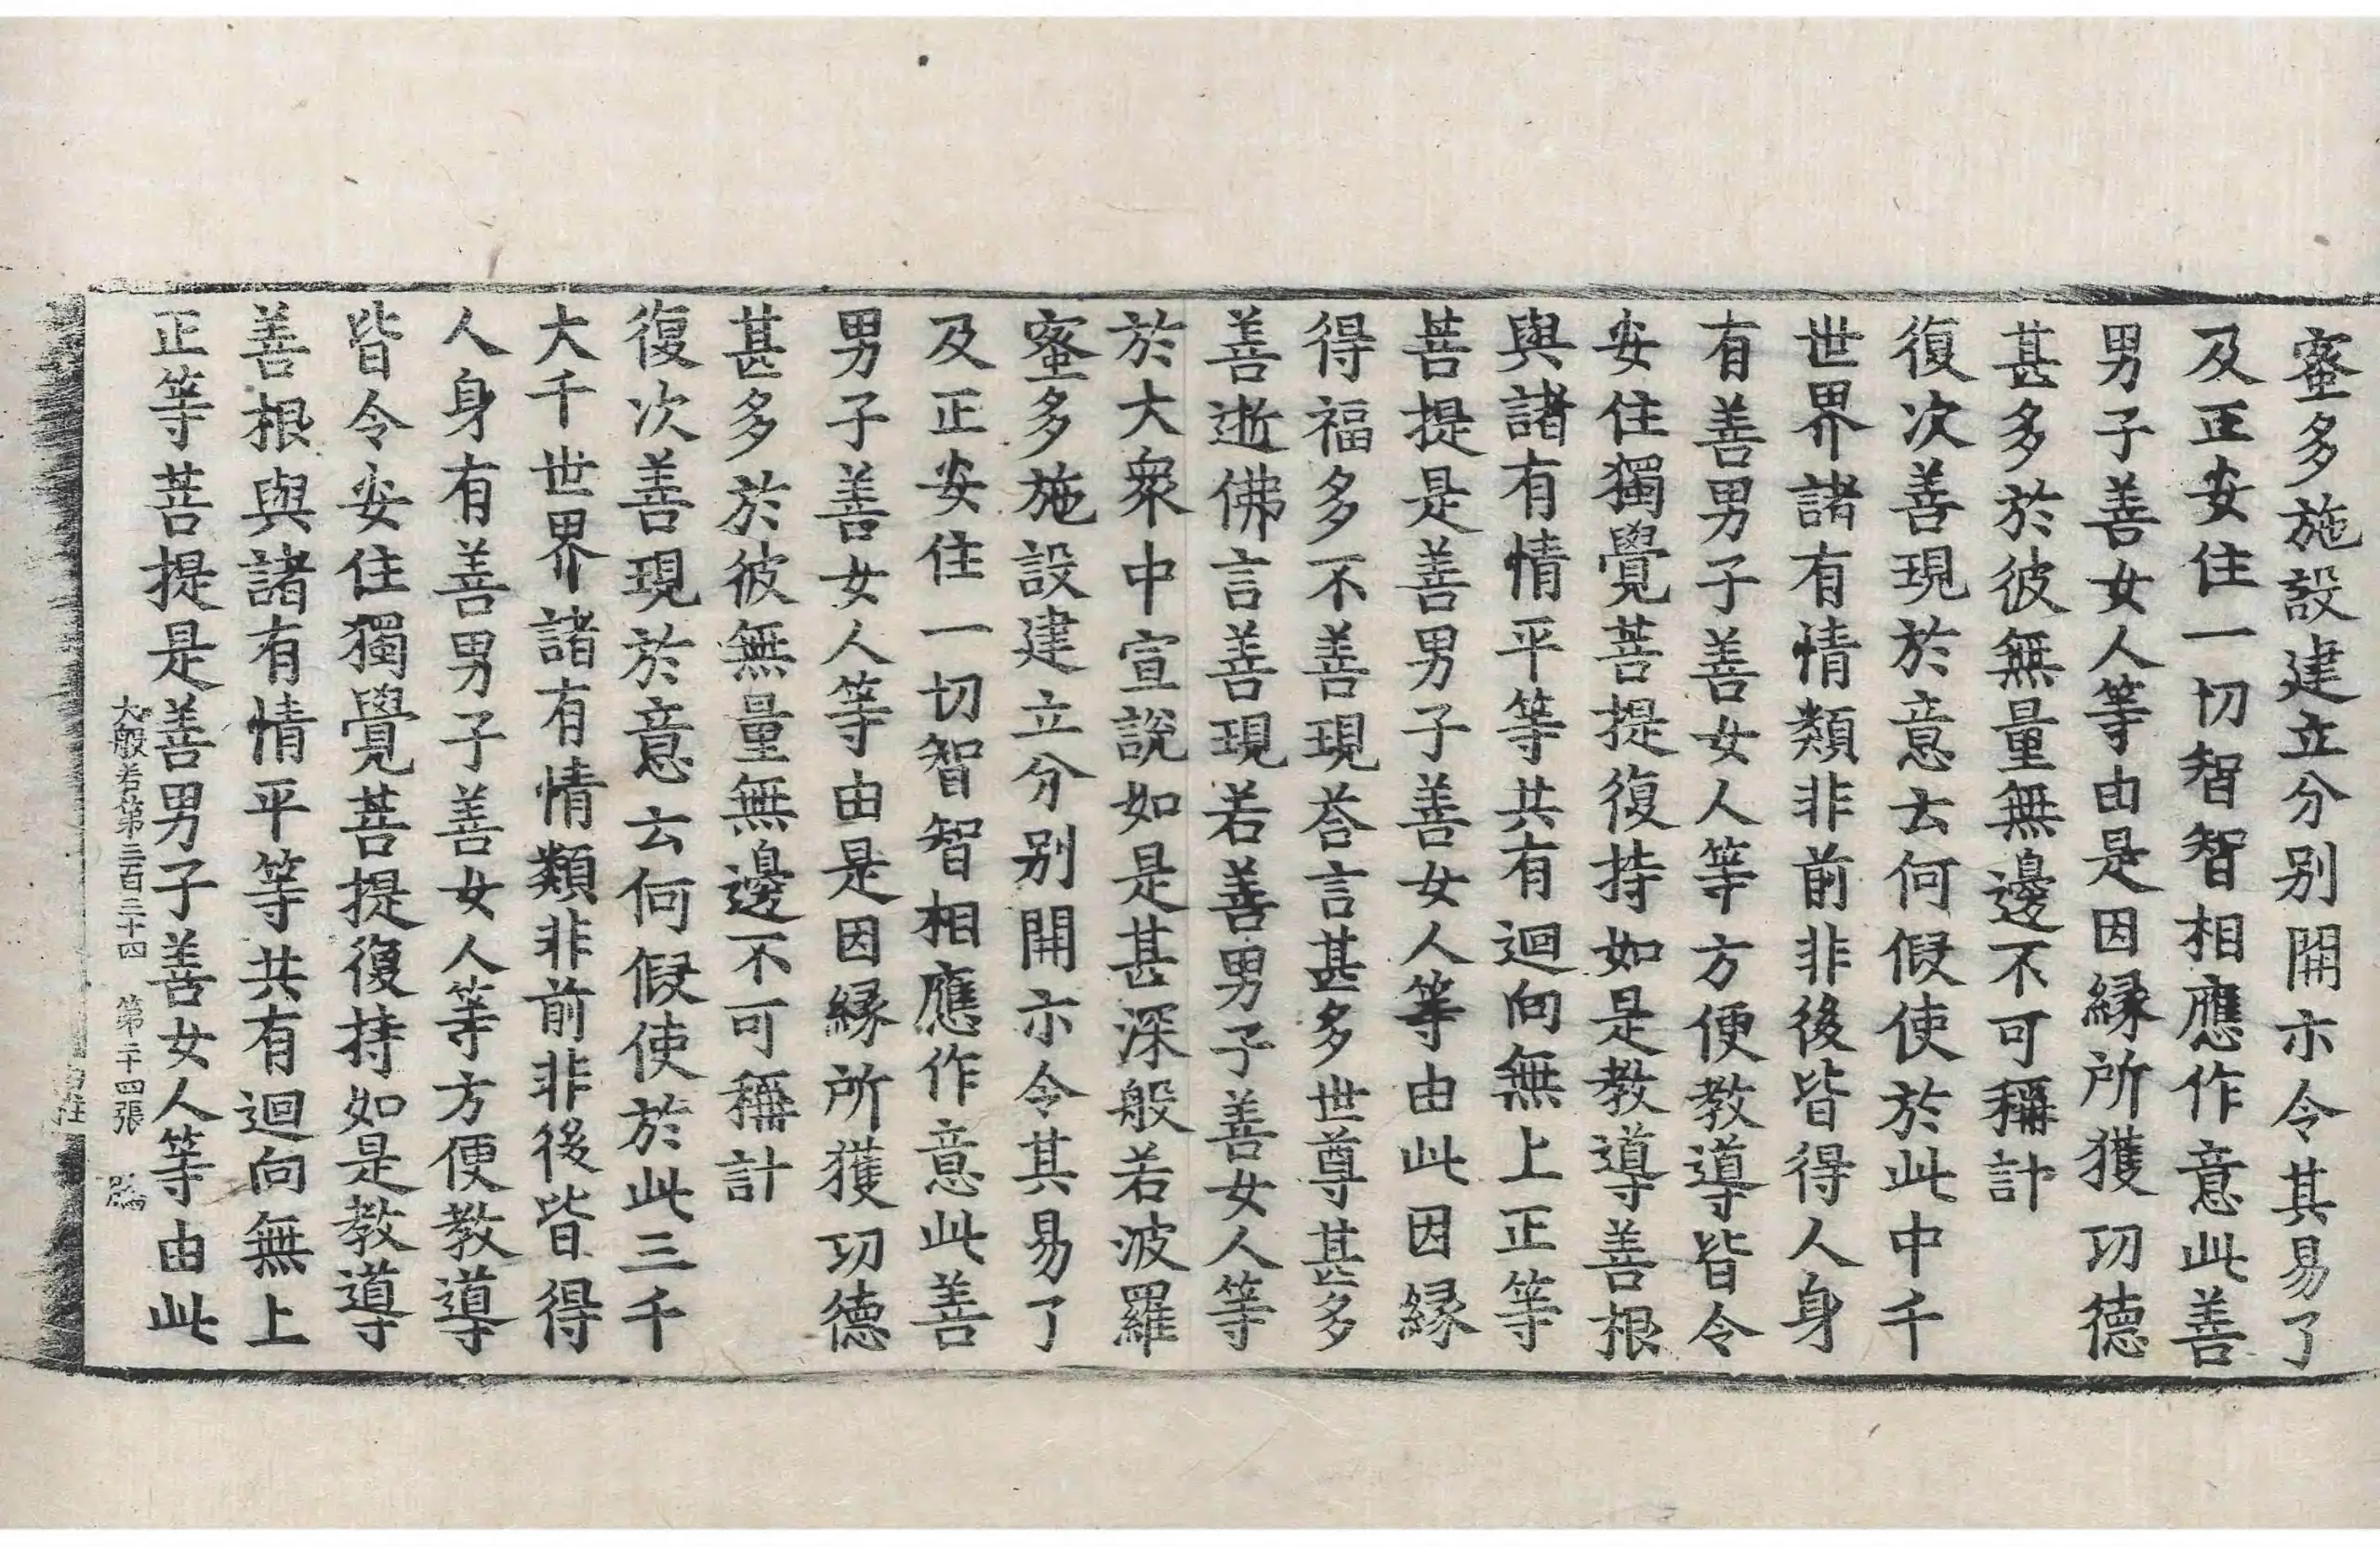 蜜多施設建立分別開示令其易了
及正安住一切智智相應作意此善
男子善女人等由是因緣所獲功德
甚多於彼無量無邊不可稱計
復次善現於意云何假使於此中千
世界諸有情類非前非後皆得人身
有善男子善女人等方便教導皆令
安住獨覺菩提復持如是教導善根
與諸有情平等共有迴向無上正等
菩提是善男子善女人等由此因緣
得福多不善現荅言甚多世尊甚多
善逝佛言善現若善男子善女人等
於大衆中宣說如是甚深般若波羅
蜜多施設建立分別開示令其易了
及正安住一切智智相應作意此善
男子善女人等由是因緣所獲功德
甚多於彼無量無邊不可稱計
復次善現於意云何假使於此三千
大千世界諸有情類非前非後皆得
人身有善男子善女人等方便教導
皆令安住獨覺菩提復持如是教導
善根與諸有情平等共有迴向無上
正等菩提是善男子善女人等由此
大般若第三百三十四 第二十四張